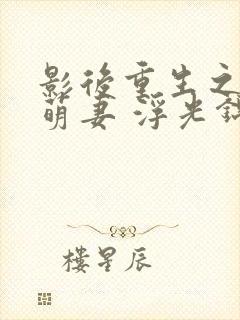 影後重生之
萌妻 浮光
樓星辰